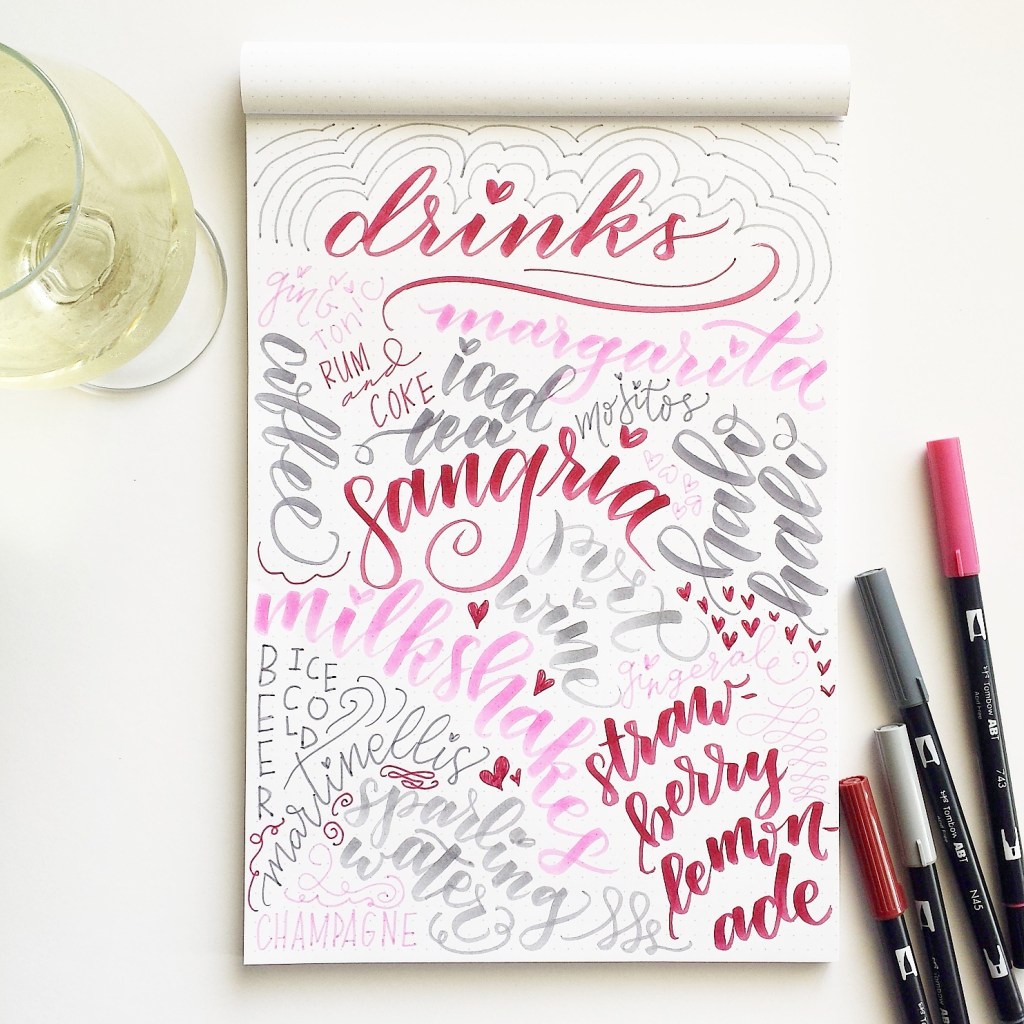 drinks
gin &
tonic
margarita
RUM
and
COKE
coffee
iced
tea
mojitos
sangria
hali
hali
sweet
wine
milkshakes
gingerale
BEER
ICE
COLD
martinellis
straw-
berry
lemon-
ade
sparling
water
CHAMPAGNE
Tombow ABT
743
Tombow ABT
N45